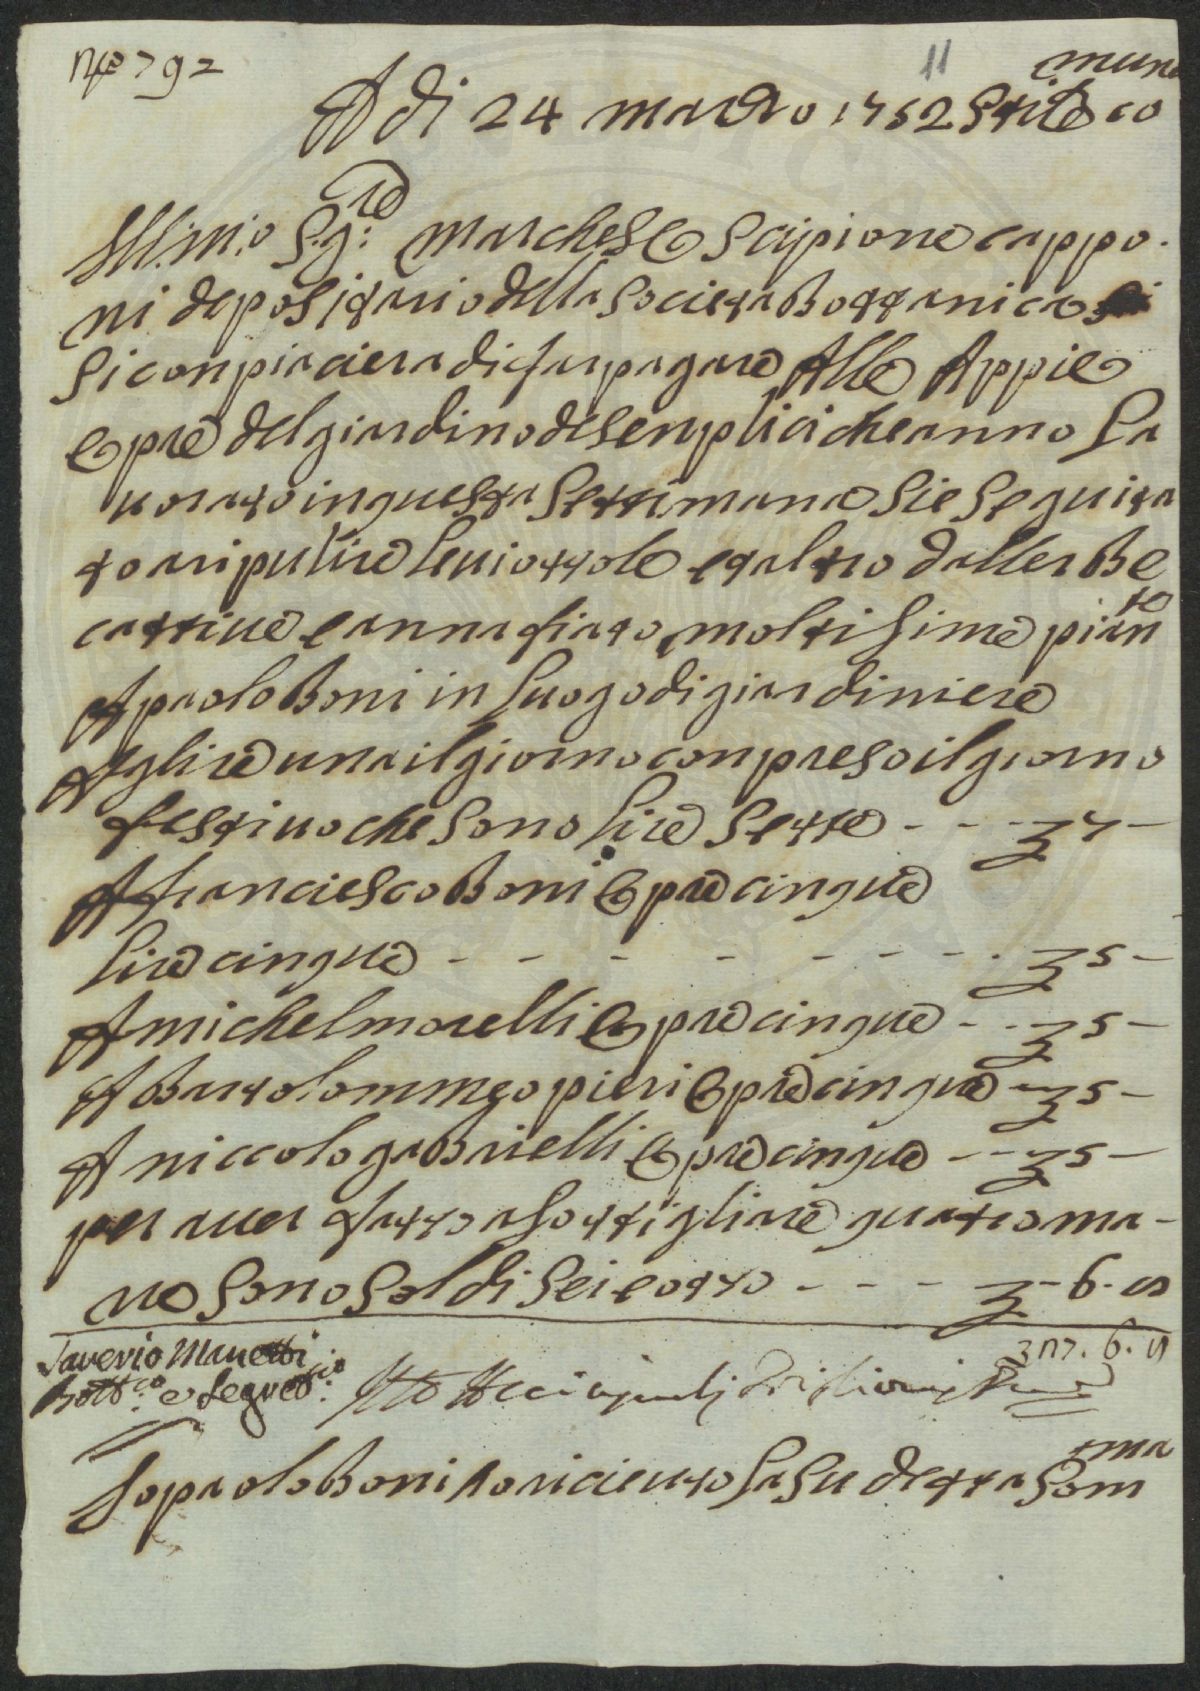 N° 792
11
Adi 24 marzo 1752 Stile co
mune
Ill.m.o Sg:re marchese Scipione cappo.
ni depositario della Societa Bottanica
Si conpiaciera di far pagare Alle Appie
Opre del giardino de Senplici che anno La
uorato in questa Settimana Sie Seguita
to a ripulire le uiottole e taltro dallerbe
cattiue e anna fiato moltisime piante
A paolo Boni in luogo di giardiniere
A lire una il giorno conpreso il giorno
festiuo che Sono lire Sette - - - £ 7 -
A franciesco Boni Opre cinque
lire cinque - - - - - - - - £ 5 -
A michel morelli Opre cinque - - £ 5 -
A Bartolommeo pieri Opre cinque - £ 5 -
A niccolo gabrielli Opre cinque - - £ 5 -
per auer fatto a Sottigliare quatro ma-
ne Sono Soldi Sei e otto - - - £ - 6. 8
£ 27. 6. 8
Saverio Manetti
Bott.co e Segret.rio
Io paolo Boni o riceuuto La Su detta Som
ma